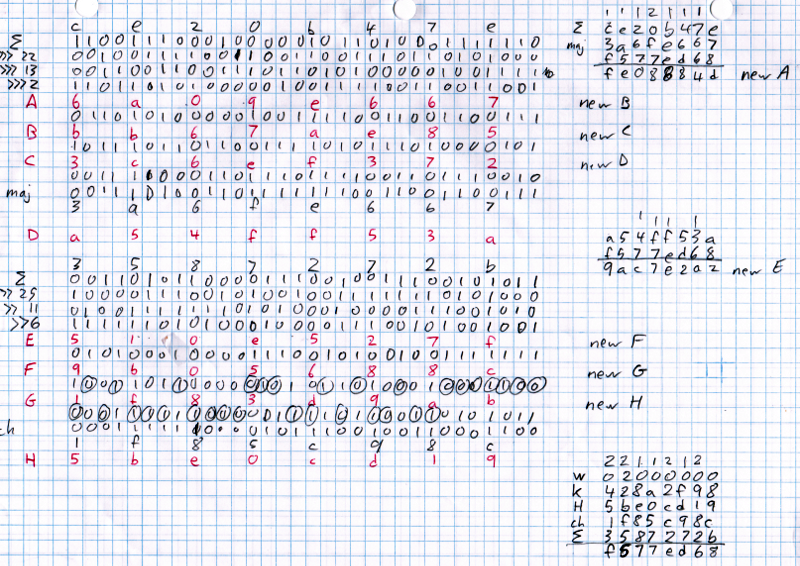 c e 2 0 b 4 7 e
Σ 11001110001000001011010001111110
>>> 22 00100111100110011001110110101000
>>> 13 00110011001110110101000001001111
>>> 2 11011010100000100111100110011001
A 6 a 0 9 e 6 6 7
01101010000010011110011001100111
B b b 6 7 a e 8 5
10111011011001111010111010000101
C 3 c 6 e f 3 7 2
00111100011011101111001101110010
maj 00111010011011111110011001100111
3 a 6 f e 6 6 7
D a 5 4 f f 5 3 a
3 5 8 7 2 7 2 b
Σ 00110101100001110010011100101011
>> 25 10000111001010010011111110101000
>> 11 01001111111010100010000111001010
>>6 11111101010001000011100101001001
E 5 1 0 e 5 2 7 f
01010001000011100101001001111111
F 9 b 0 5 6 8 8 c
10011011000001010110100010001100
G 1 f 8 3 d 9 a b
00011111100000111101100110101011
ch 00011111100001011100100110001100
1 f 8 5 c 9 8 c
H 5 b e 0 c d 1 9
1 1 1 2 1 1 1
Σ c e 2 0 b 4 7 e
maj 3 a 6 f e 6 6 7
f 5 7 7 e d 6 8
f e 0 8 8 8 4 d new A
new B
new C
new D
1 1 1 1
a 5 4 f f 5 3 a
f 5 7 7 e d 6 8
9 a c 7 e 2 a 2 new E
new F
new G
new H
2 2 1 1 2 1 2
w 0 2 0 0 0 0 0 0
k 4 2 8 a 2 f 9 8
H 5 b e 0 c d 1 9
ch 1 f 8 5 c 9 8 c
Σ 3 5 8 7 2 7 2 b
f 5 7 7 e d 6 8